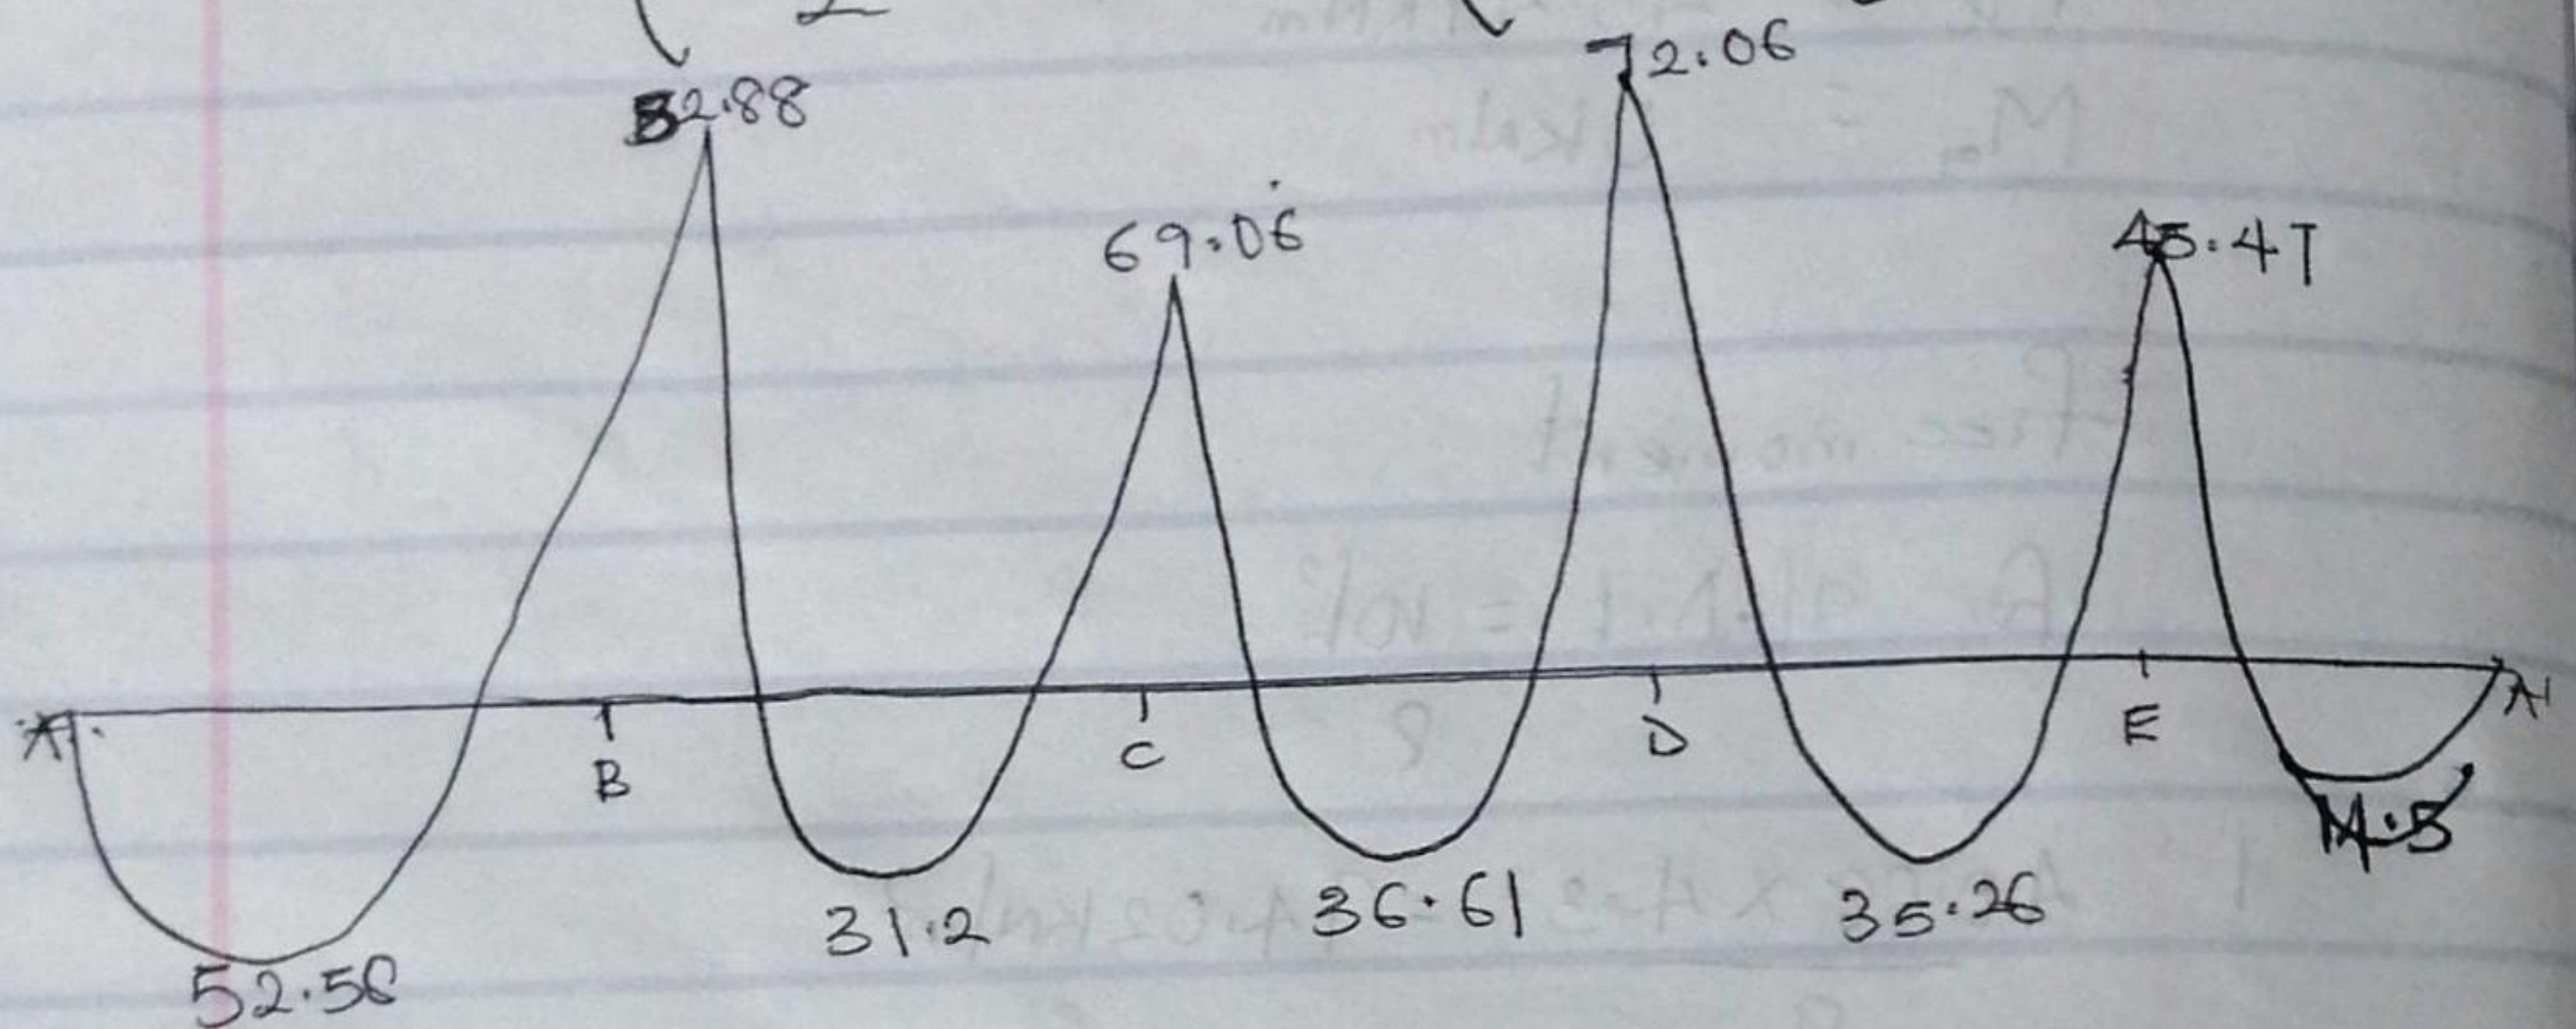 72.06
69.06
45.47
A
B
C
D
E
A
52.56
31.2
36.61
35.26